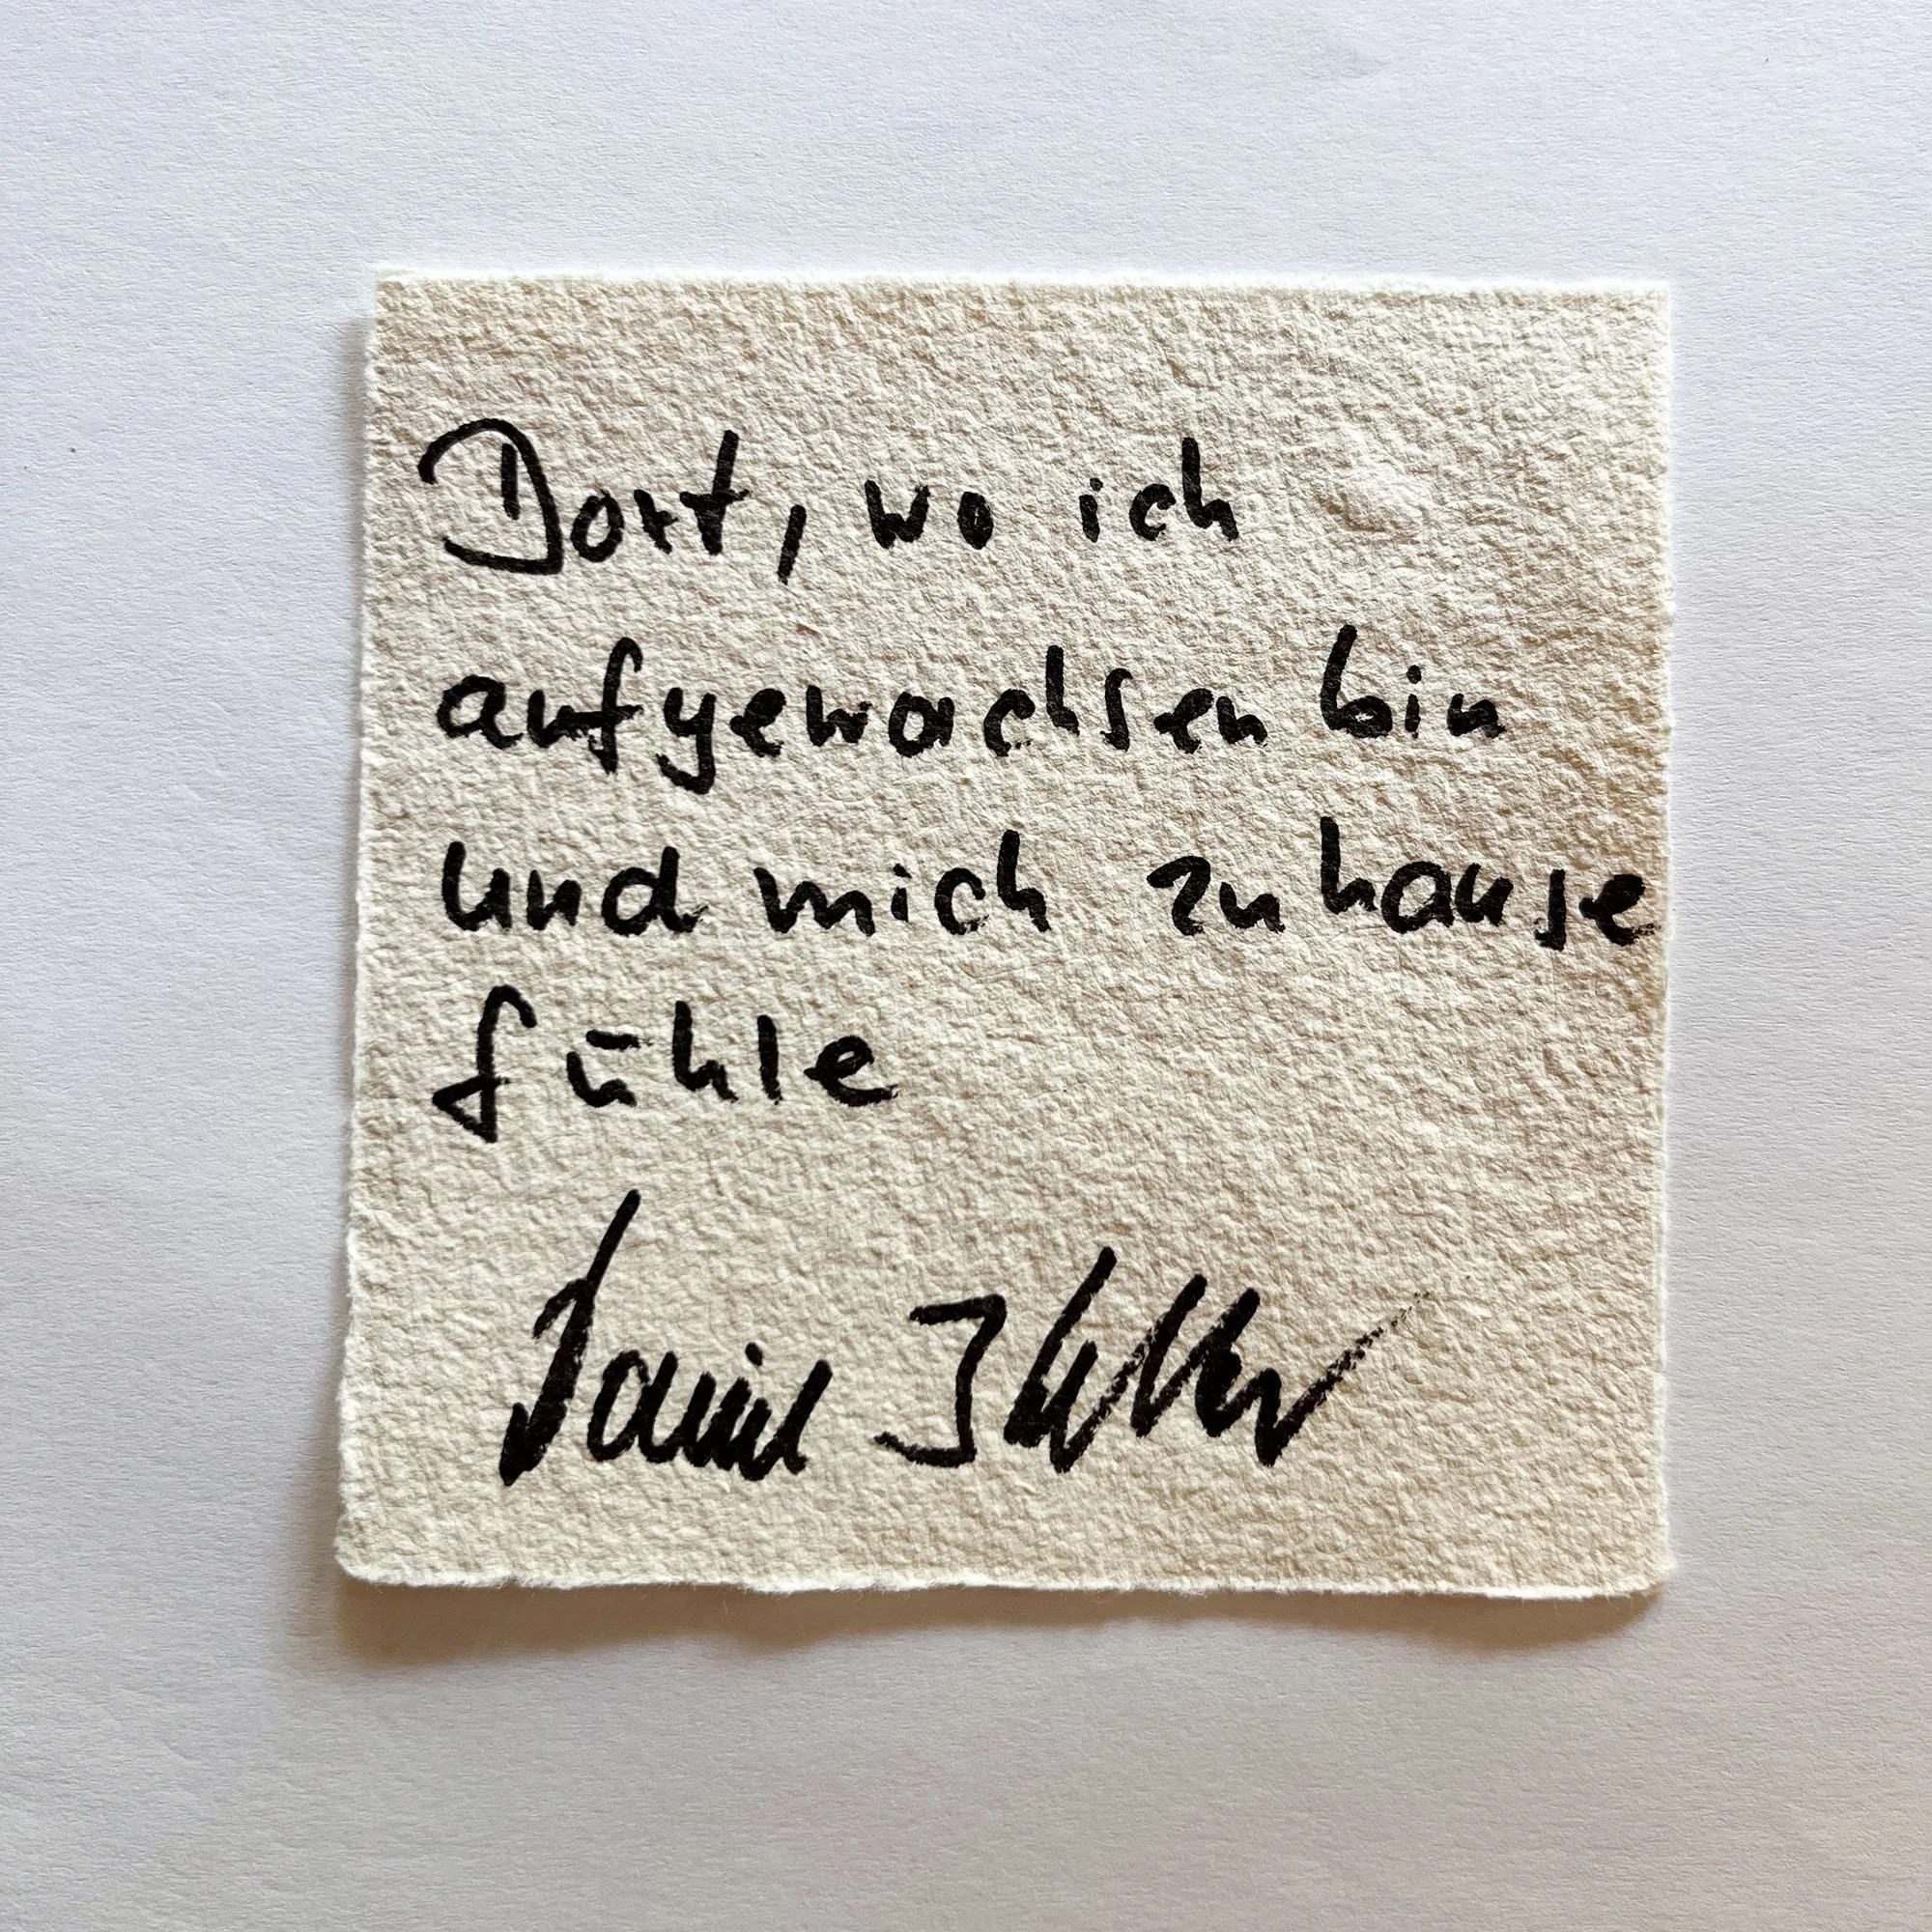 Dort, wo ich
aufgewachsen bin
und mich zuhause
fühle